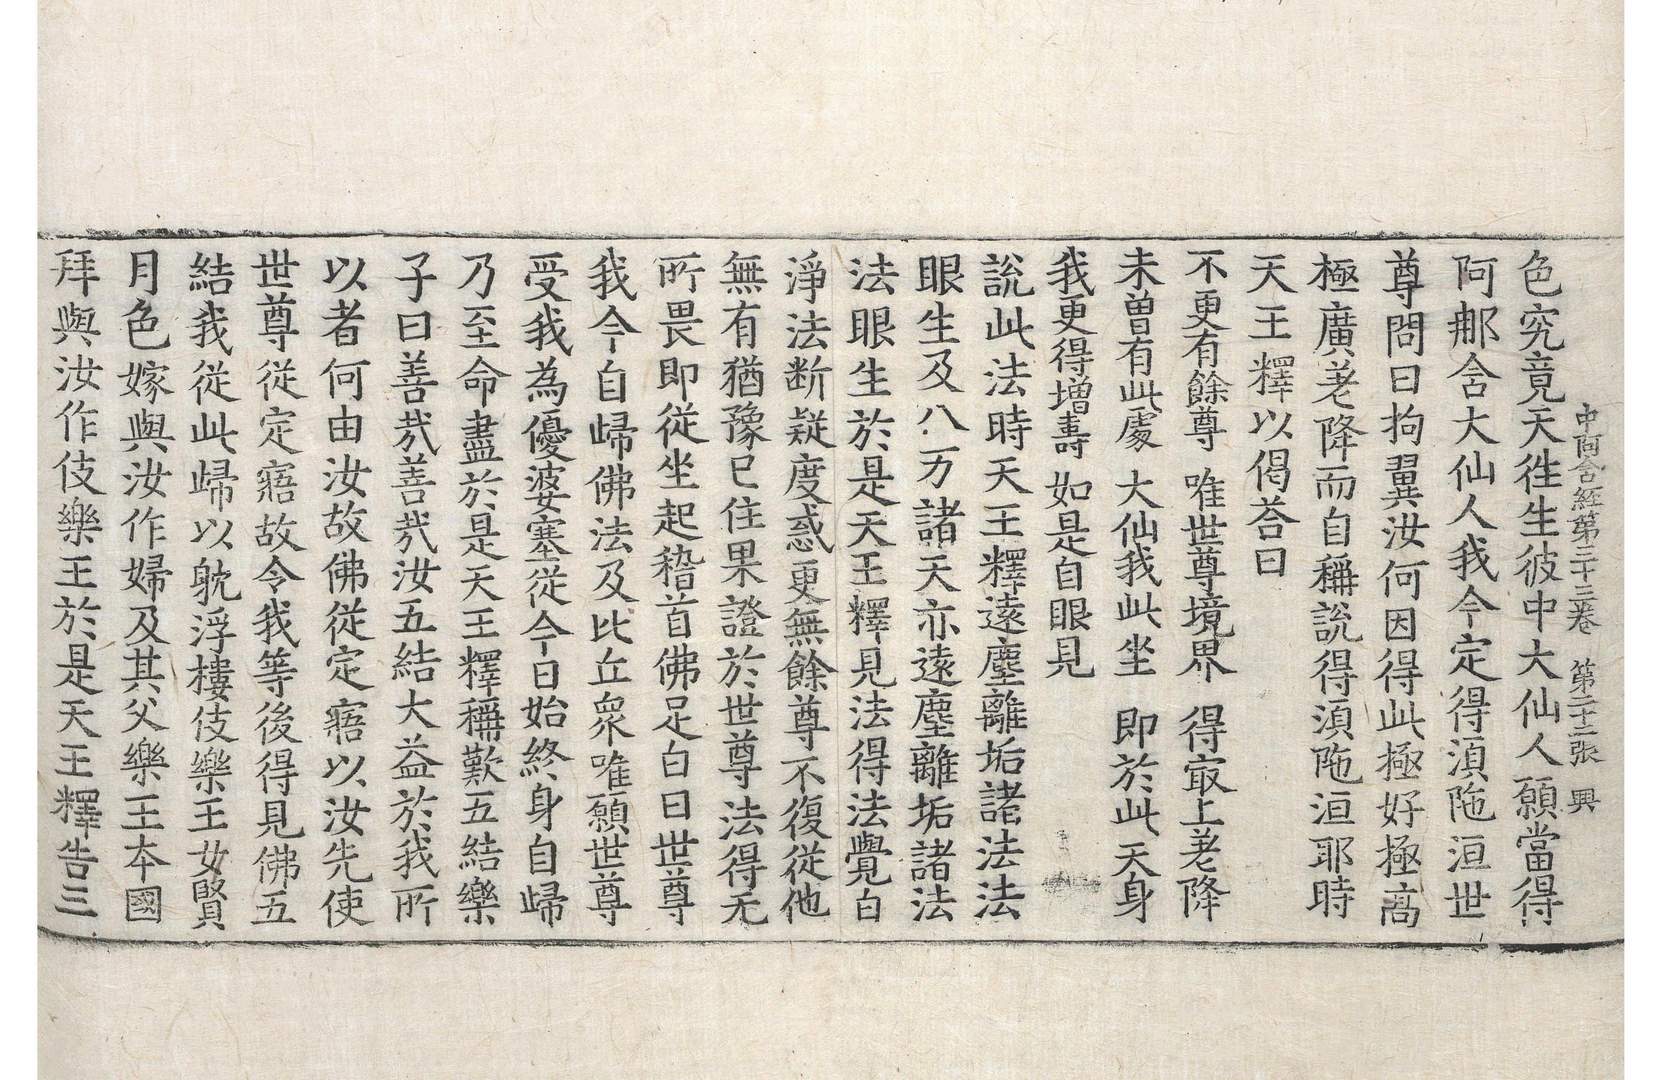 中阿含經第三十三卷 第二十二張 興
色究竟天徃生彼中大仙人願當得
阿那含大仙人我今定得湏陁洹世
尊問曰拘翼汝何因得此極好極高
極廣差降而自稱說得湏陁洹耶時
天王釋以偈荅曰
不更有餘尊 唯世尊境界 得㝡上差降
未曽有此處 大仙我此坐 即於此天身
我更得増壽 如是自眼見
說此法時天王釋遠塵離垢諸法法
眼生及八万諸天亦遠塵離垢諸法
法眼生於是天王釋見法得法覺白
淨法断疑度惑更無餘尊不復從他
無有猶豫已住果證於世尊法得无
所畏即從坐起稽首佛足白曰世尊
我今自歸佛法及比丘衆唯願世尊
受我為優婆塞從今日始終身自歸
乃至命盡於是天王釋稱歎五結樂
子曰善㢤善㢤汝五結大益於我所
以者何由汝故佛從定寤以汝先使
世尊從定寤故令我等後得見佛五
結我從此歸以躭浮樓伎樂王女賢
月色嫁與汝作婦及其父樂王本國
拜與汝作伎樂王於是天王釋告三